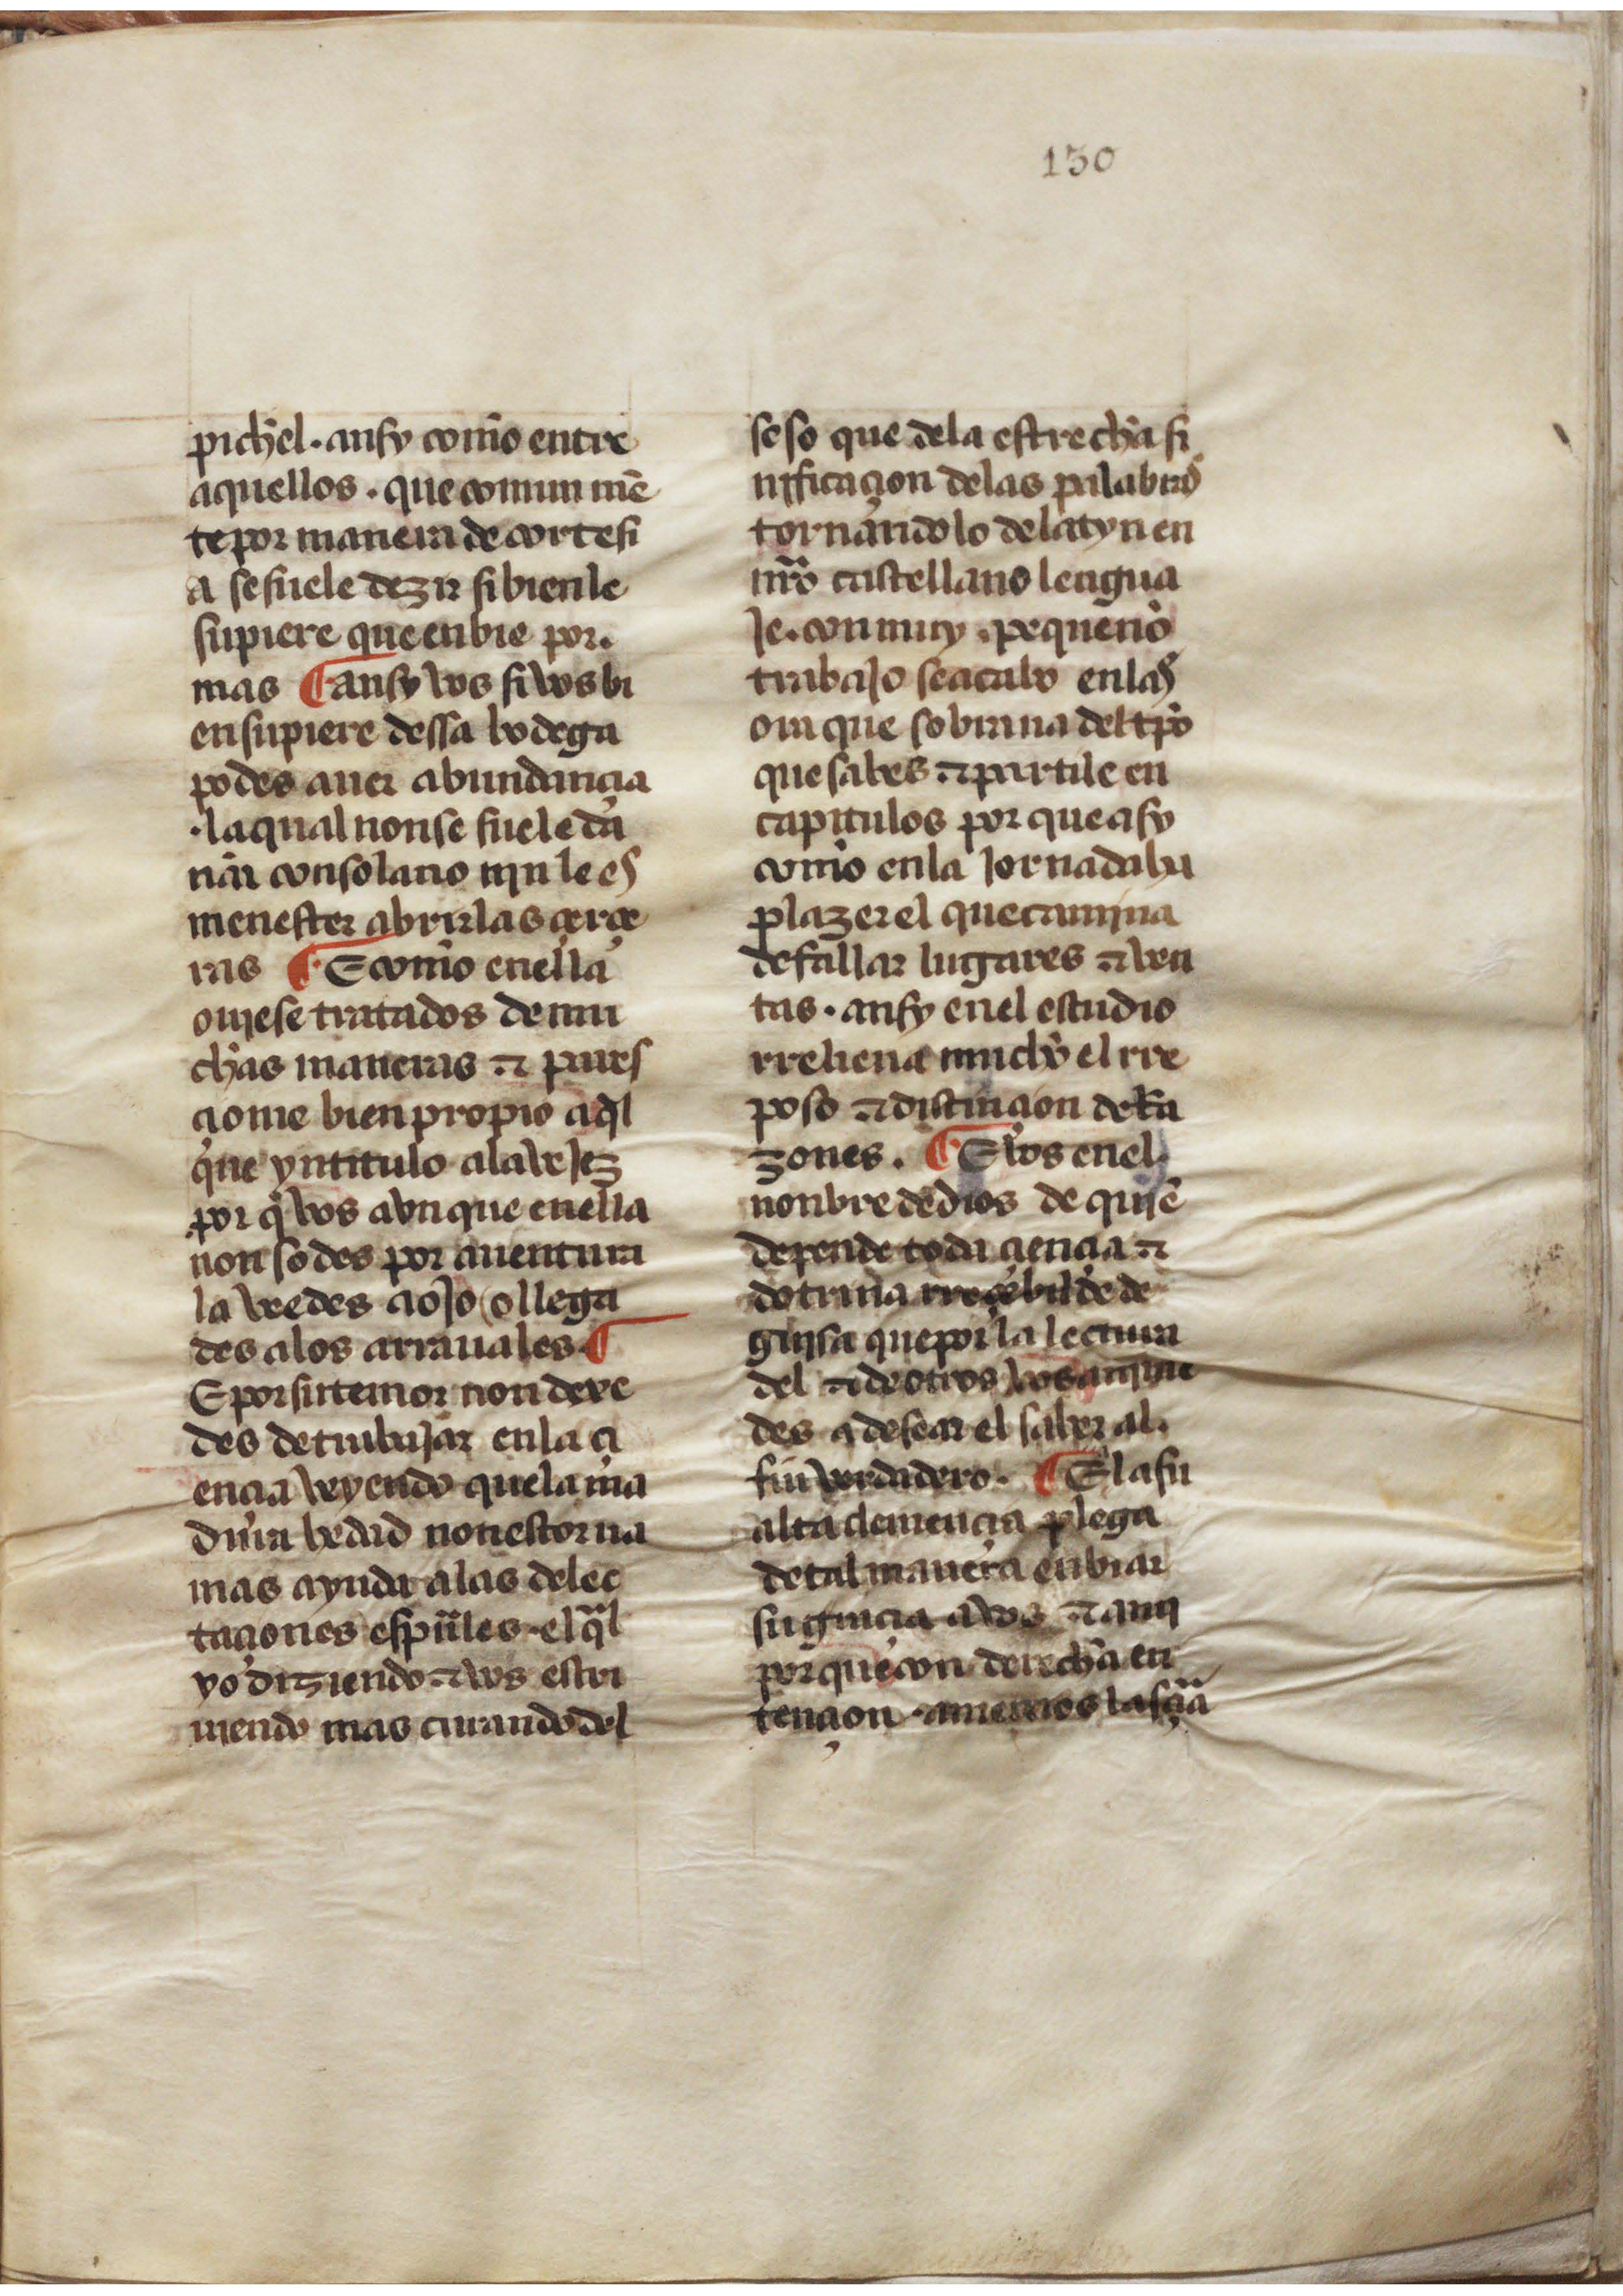 130
pichel · ansy com̃o entre
aquellos · que comun mẽ
te por manera de cortesi
a se suele dezir si bien le
supiere que enbie por .
mas ¶ ansy vos si vos bi
en supiere dessa bodega
podes auer abundançia
· la qual non se suele da
ñar con solano nin le es
menester abrir las çerçe
ras ¶ E com̃o en ella
ouiese tratados de mu
chas maneras ⁊ pares
çiome bien propio aq̃l
que yntitulo a la vejez
por q̃ vos avn que en ella
non sodes por auentura
la vedes a ojo o llega
des a los arrauales ¶
E por su temor non deve
des de trabajar en la çi
ençia veyendo que la ma
dura hedad non estorua
mas ayuda a las delec
taçiones esp̃uales · el q̃l
yo diziendo ⁊ vos escri
uiendo mas curando del
seso que de la estrecha si
nificaçion de las palabras
tornando lo de latyn en
nr̃o castellano lengua
je · con muy pequeño
trabajo se acabo en las
ora que sobraua del tp̃o
que sabes ⁊ partile en
capitulos por que asy
com̃o en la jornada ha
plazer el que camina
de fallar lugares ⁊ ven
tas · ansy en el estudio
rreliena mucho el rre
poso ⁊ distinçion de Ra
zones . ¶ E vos en el
nonbre de dios de quiẽ
depende toda çiençia ⁊
dotrina rreçebilde de
guisa que por la lectura
del ⁊ de otros vos
des a desear el saber al
fin verdadero · ¶ E la su
alta clemençia plega
de tal manera enbiar
su graçia a vos ⁊ a mi
por que con derecha en
tençion · amemos la sçia